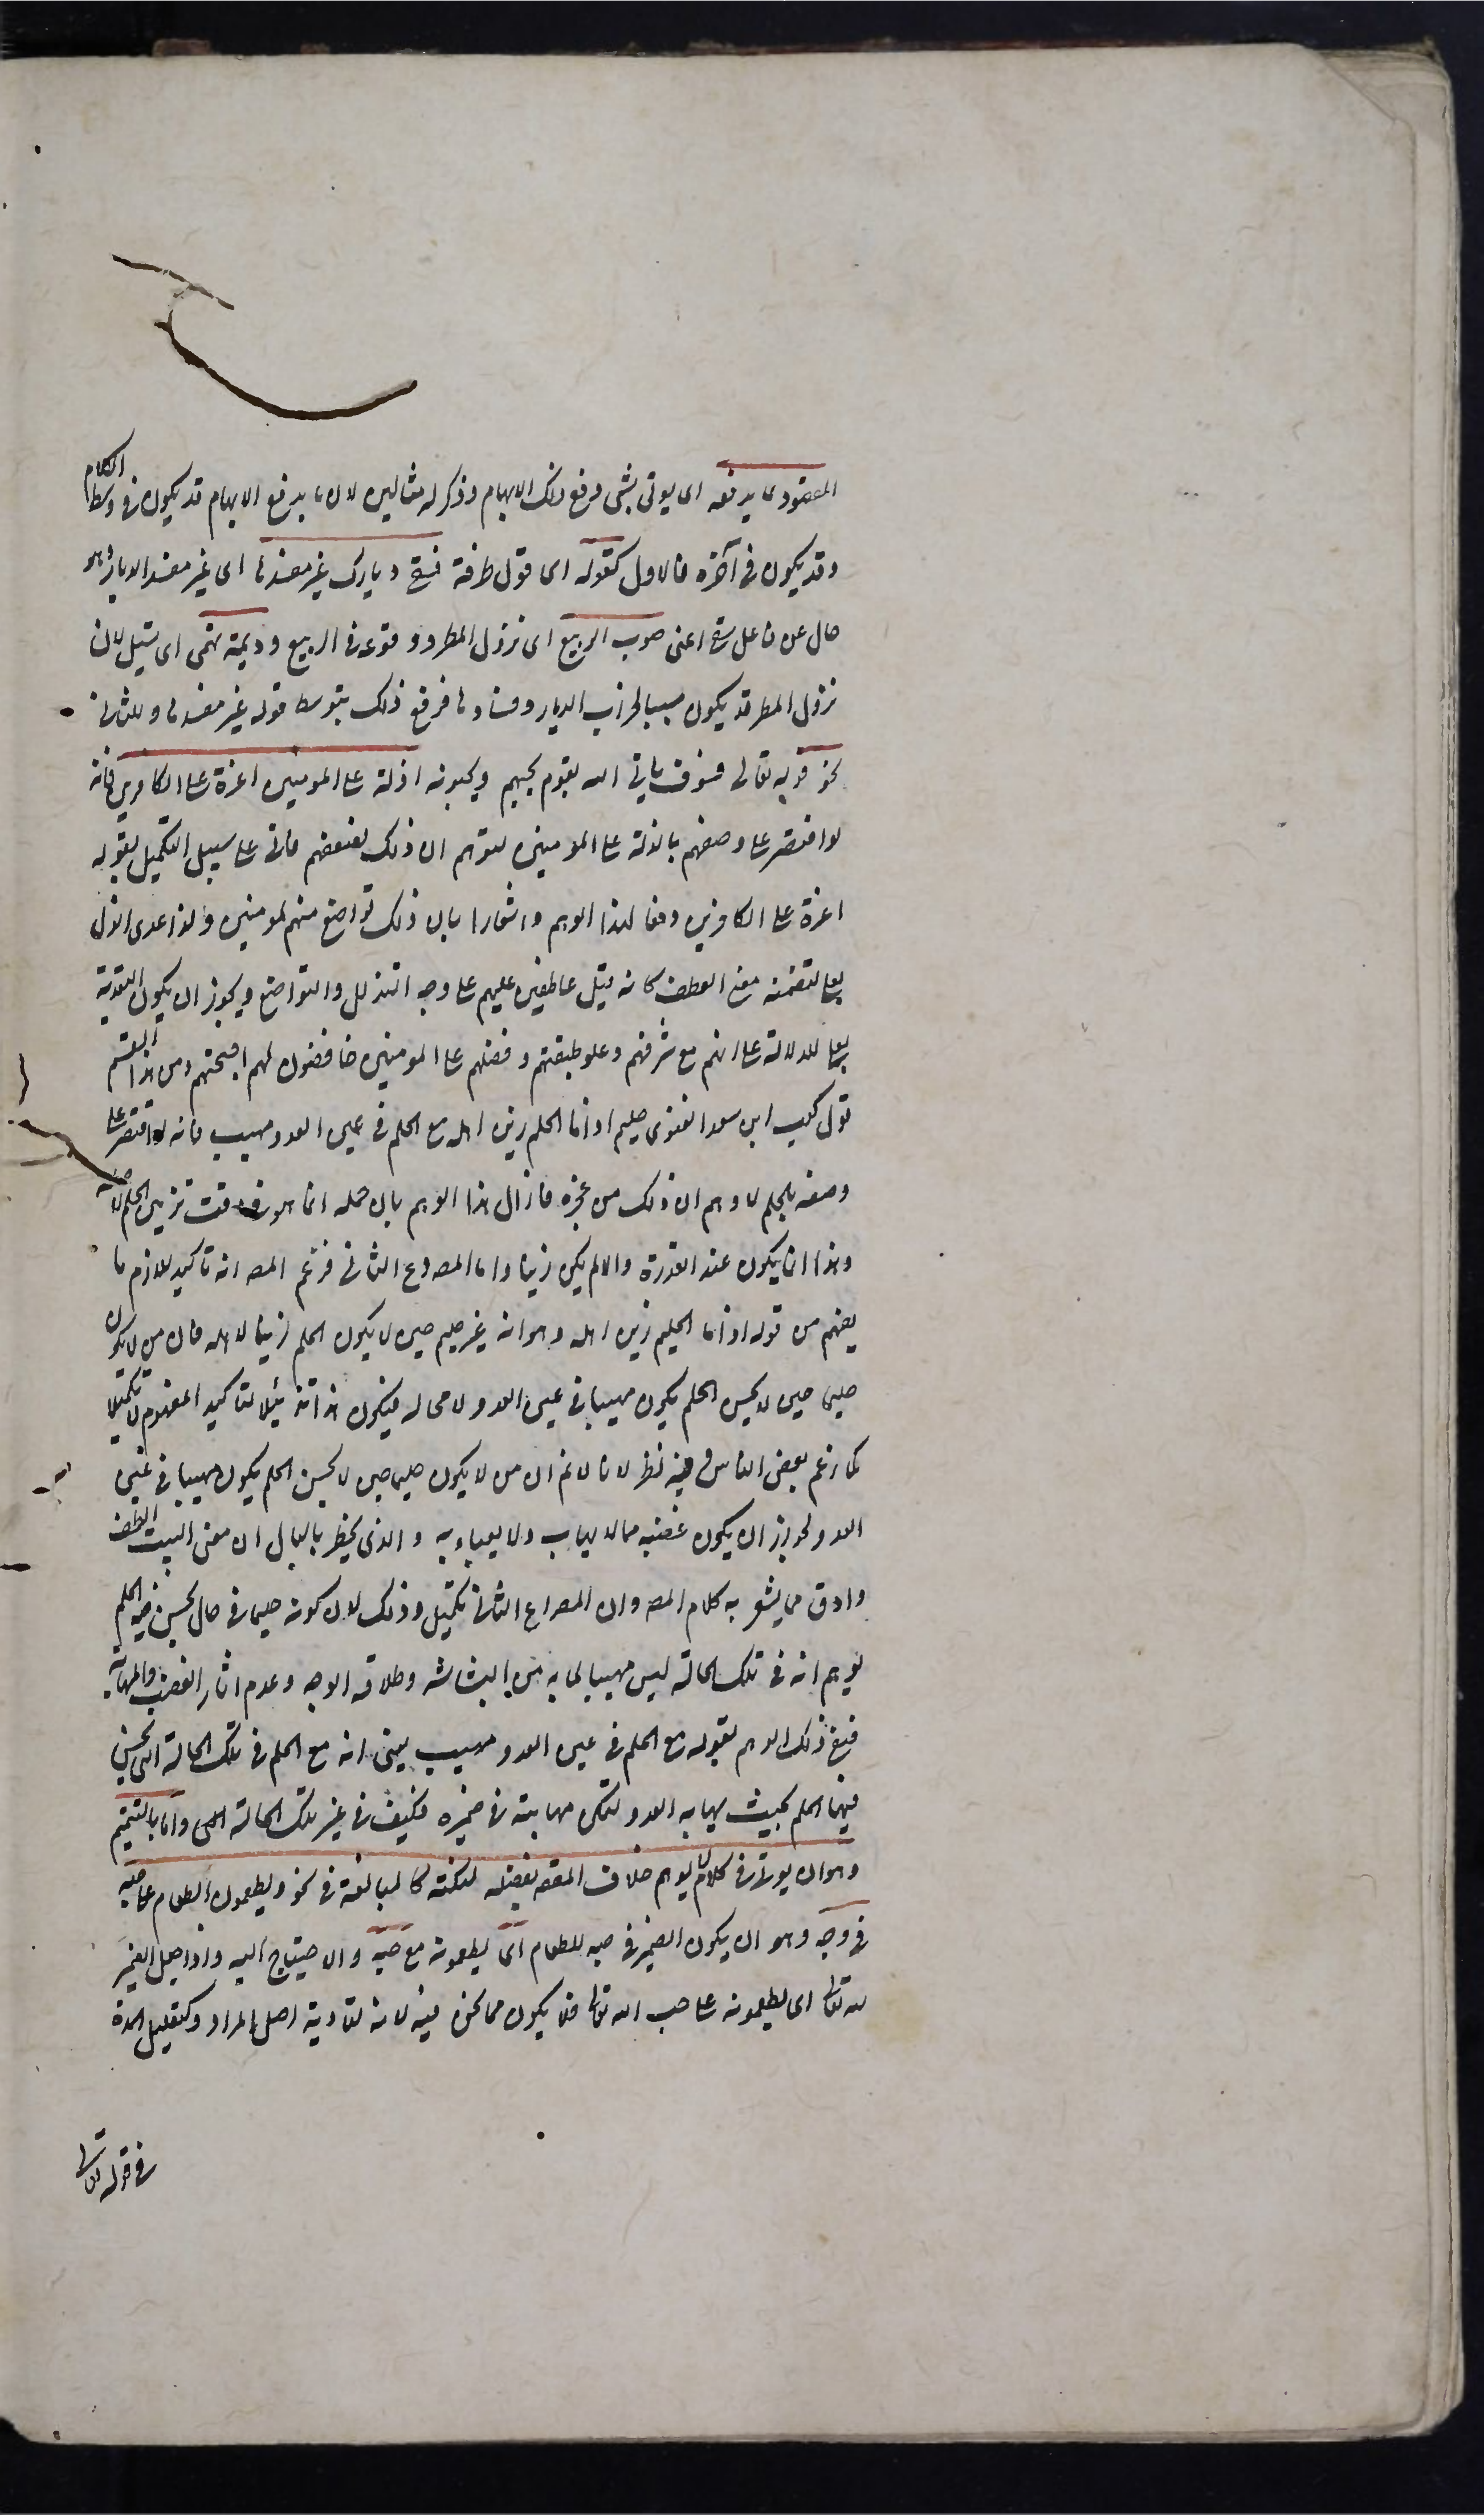 المقصود بما يدفعه اى يوتى بشى يدفع ذلك الايهام وذكر له مثالين لان ما يدفع الايهام قد يكون فى وسط الكلام
وقد يكون فى آخره فالاول كقوله اى قول طرفة فسقى ديارك غير مفسدها اى غير مفسد الديار وهو
حال عن فاعل سقى اعنى صوب الربيع اى نزول المطر ووقوعه فى الربيع وديمة تهمى اى تسيل لان
نزول المطر قد يكون سببا لخراب الديار وفسادها فدفع ذلك بتوسط قوله غير مفسدها والثانى
نحو قوله تعالى فسوف ياتى الله بقوم يحبهم ويحبونه اذلة على المومنين اعزة على الكافرين فانه
لو اقتصر على وصفهم بالذلة على المومنين لتوهم ان ذلك لضعفهم فاتى على سبيل التكميل بقوله
اعزة على الكافرين دفعا لهذا الوهم واشعارا بان ذلك تواضع منهم للمومنين ولذا عدى الذل
بعلى لتضمنه معنى العطف كانه قيل عاطفين عليهم على وجه التذلل والتواضع ويجوز ان يكون التعدية
بعلى للدلالة على انهم مع شرفهم وعلو طبقتهم وفضلهم على المومنين خافضون لهم اجنحتهم ومن هذا القسم
قول كعب ابن سعد الغنوى حليم اذا ما الحلم زين اهله مع الحلم فى عين العدو مهيب فانه لو اقتصر على
وصفه بالحلم لاوهم ان ذلك من عجزه فازال هذا الوهم بان حلمه انما هو فى وقت تزيين الحلم لاهله
وهذا انما يكون عند القدرة والا لم يكن زينا واما المصرع الثانى فزعم المصـ انه تاكيد للازم ما
يفهم من قوله اذا ما الحلم زين اهله وهو انه غير حليم حين لا يكون الحلم زينا لاهله فان من لا يكون
حليما حين لا يحسن الحلم يكون مهيبا فى عين العدو لا محالة فيكون هذا تذييلا لتاكيد المفهوم لا تكميلا
كما زعم بعض الناس وفيه نظر لانا لا نم ان من لا يكون حليما حين لا يحسن الحلم يكون مهيبا فى عين
العدو لجواز ان يكون غضبه مما لا يهاب ولا يعباء به والذى يخطر بالبال ان معنى البيت الطف
وادق مما يشعر به كلام المصـ وان المصراع الثانى تكميل وذلك لان كونه حليما فى حال يحسن فيه الحلم
يوهم انه فى تلك الحالة ليس مهيبا لما به من البشاشه وطلاقة الوجه وعدم اثار الغضب والمهابة
فنفى ذلك الوهم بقوله مع الحلم فى عين العدو مهيب يعنى انه مع الحلم فى تلك الحالة التى يحسن
فيها الحلم بحيث يهابه العدو لتمكن مهابته فى ضميره فكيف فى غير تلك الحالة اهى واما بالتتميم
وهو ان يوتى فى كلام لا يوهم خلاف المقصـ بفضلة لنكتة كالمبالغة فى نحو ويطعمون الطعام على حبه
فى وجه وهو ان يكون الضمير فى حبه للطعام اى يطعمونه مع حبه والاحتياج اليه واذا جعل الضمير
لله تعالى اى يطعمونه على حب الله تعالى فلا يكون مما نحن فيه لانه لتادية اصل المراد وكتقليل المدة
فى قوله تعالى